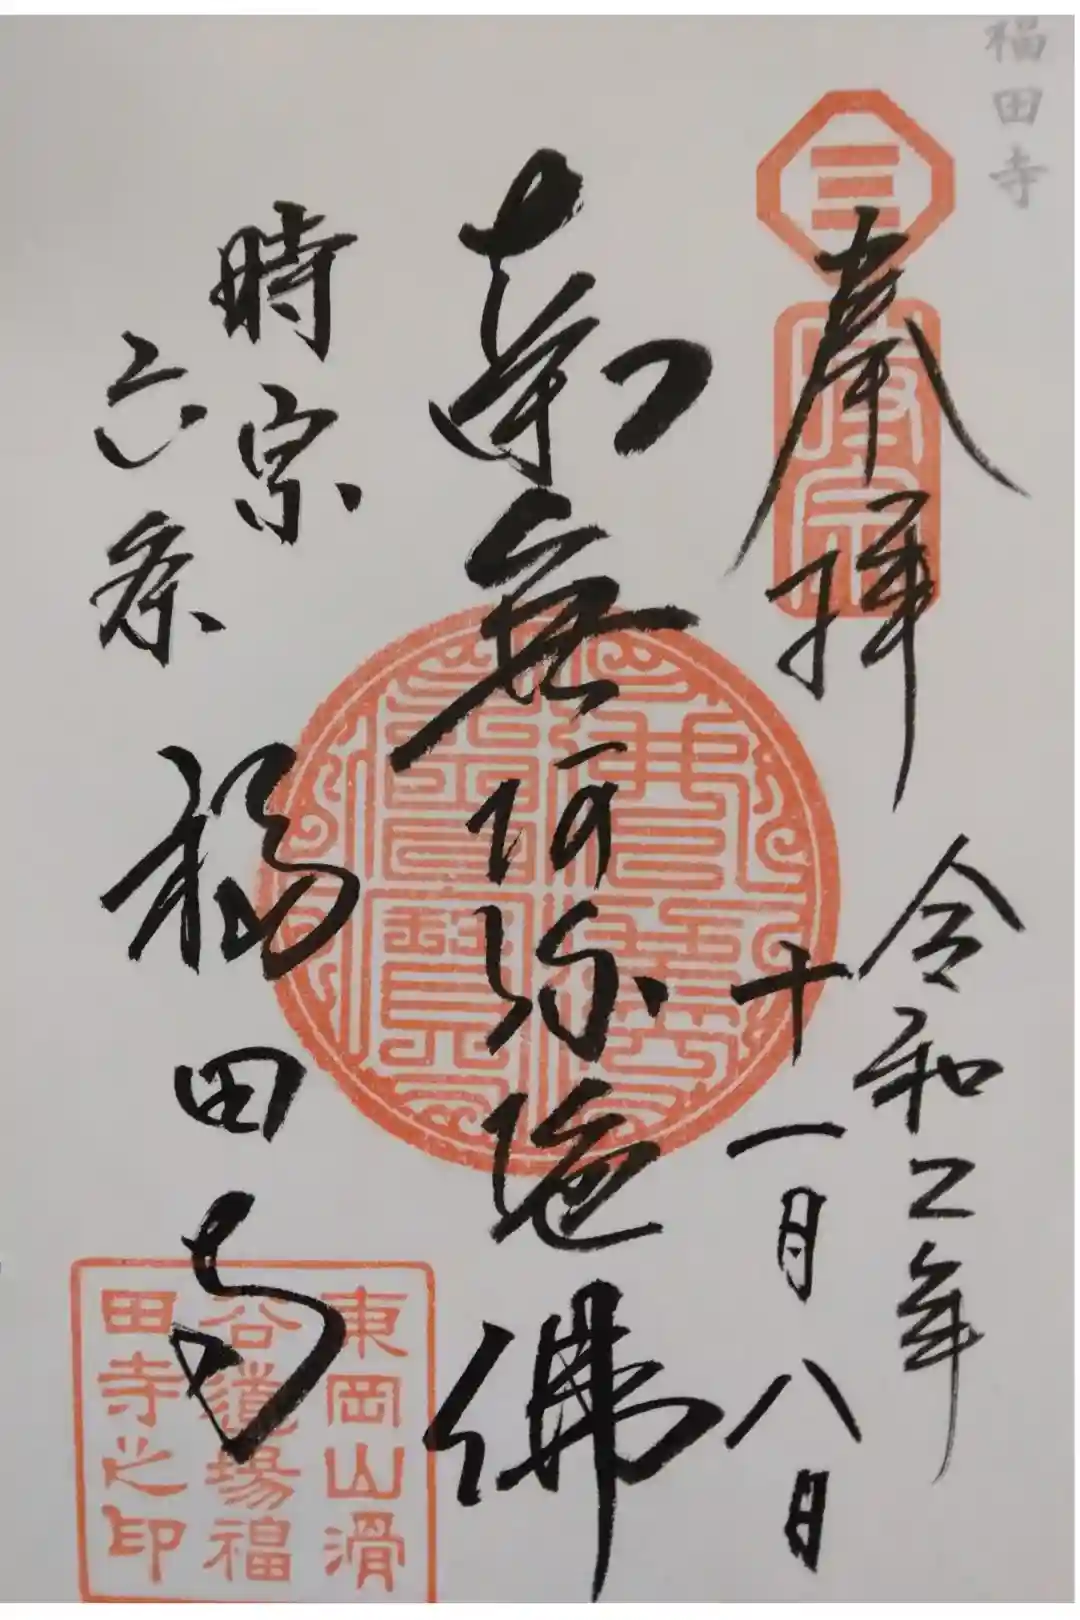 福田寺
奉拝
令和二年
十一月八日
南無阿弥陀佛
時宗
六条
福田寺
時宗
佛法僧寶
東岡山滑
谷道場福
田寺之印